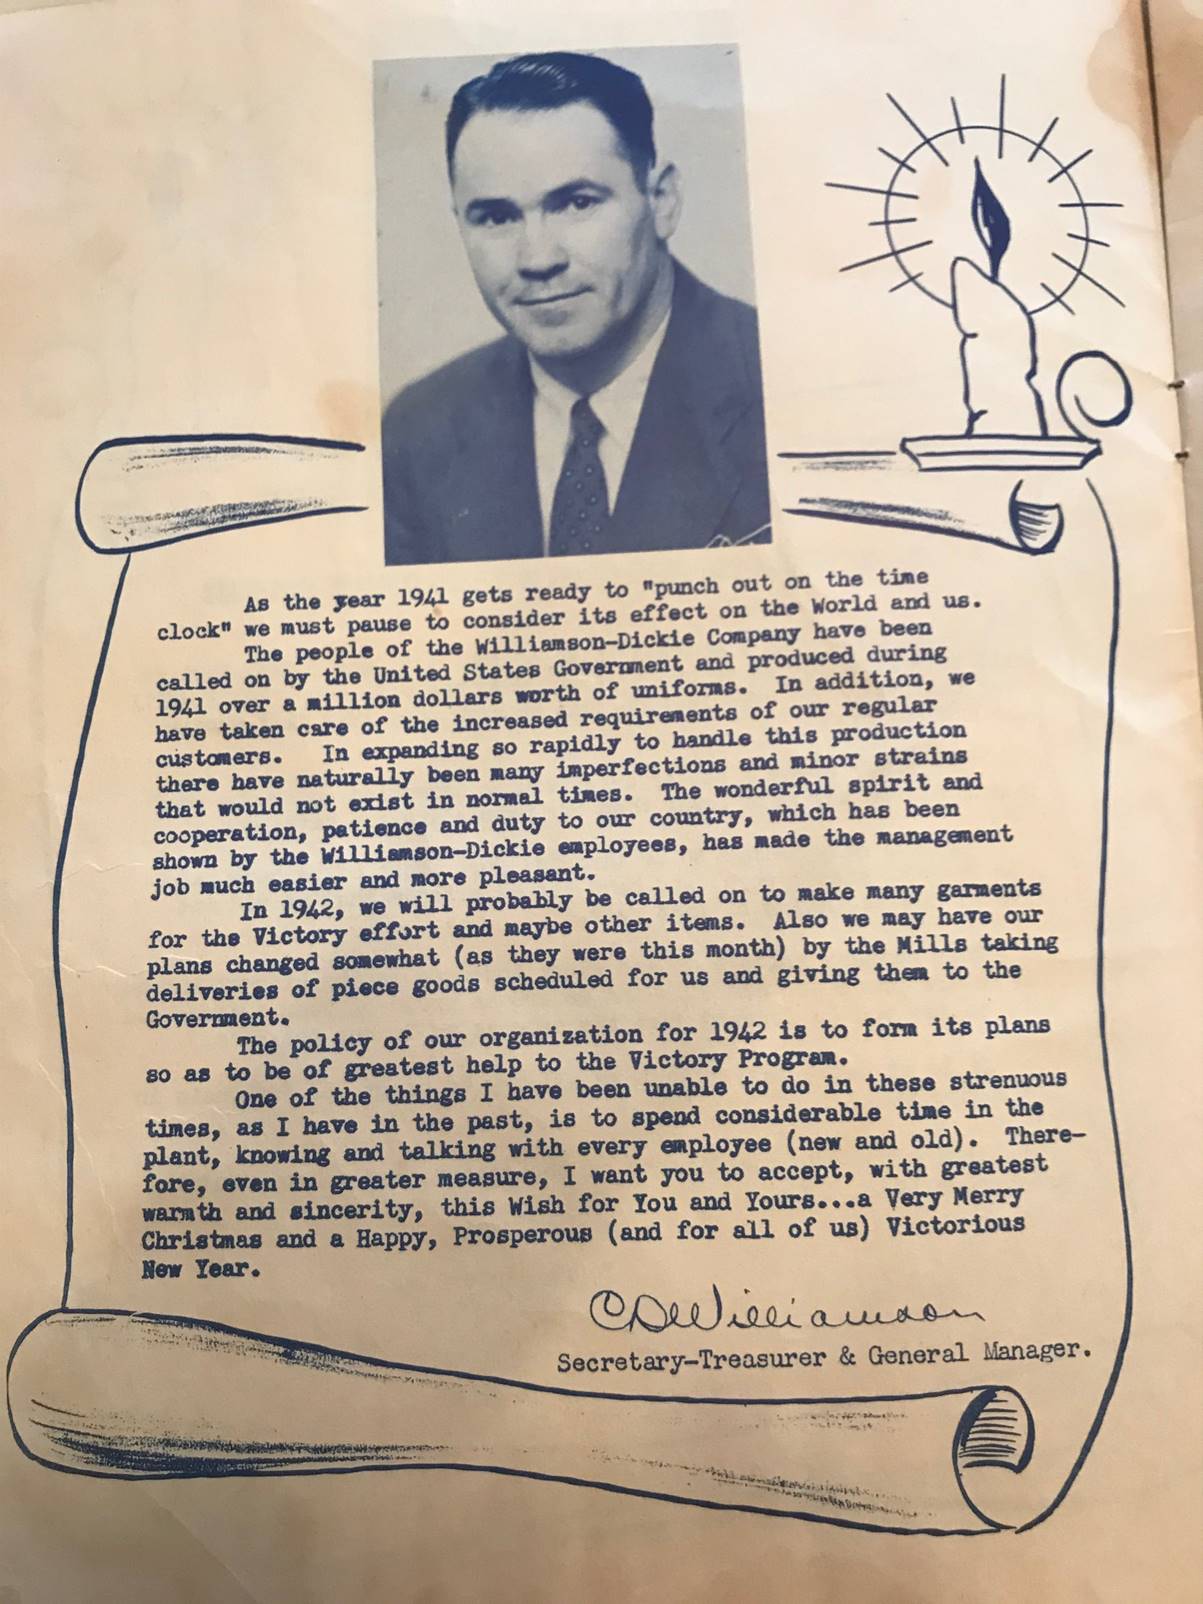 As the year 1941 gets ready to "punch out on the time
clock" we must pause to consider its effect on the World and us.
The people of the Williamson-Dickie Company have been
called on by the United States Government and produced during
1941 over a million dollars worth of uniforms. In addition, we
have taken care of the increased requirements of our regular
customers. In expanding so rapidly to handle this production
there have naturally been many imperfections and minor strains
that would not exist in normal times. The wonderful spirit and
cooperation, patience and duty to our country, which has been
shown by the Williamson-Dickie employees, has made the management
job much easier and more pleasant.
In 1942, we will probably be called on to make many garments
for the Victory effort and maybe other items. Also we may have our
plans changed somewhat (as they were this month) by the Mills taking
deliveries of piece goods scheduled for us and giving them to the
Government.
The policy of our organization for 1942 is to form its plans
so as to be of greatest help to the Victory Program.
One of the things I have been unable to do in these strenuous
times, as I have in the past, is to spend considerable time in the
plant, knowing and talking with every employee (new and old). There-
fore, even in greater measure, I want you to accept, with greatest
warmth and sincerity, this Wish for You and Yours...a Very Merry
Christmas and a Happy, Prosperous (and for all of us) Victorious
New Year.
C D Williamson
Secretary-Treasurer & General Manager.